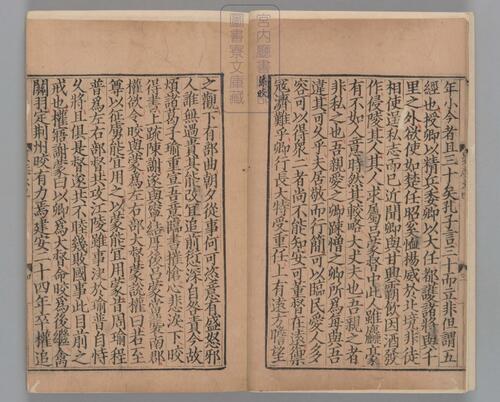 宮內廳書陵部
圖書寮文庫藏
年小今者且三十矣孔子言三十而立非但謂五
經也授卿以精兵委卿以大任都護諸將與千
里之外欲使如楚任昭奚恤揚威於北境非徒
相使逞私志而已近聞卿與甘興霸飲因酒發
作侵陵其人其人求屬呂蒙督中此人雖麤豪
有不如人意時然其較略大丈夫也吾親之者
非私之也吾親愛之卿疎憎之卿所為每與吾
違其可久乎夫居敬而行簡可以臨民愛人多
容可以得衆二者尚不能知安可董督在遠禦
寇濟難乎卿行長大特受重任上有遠方瞻望
之觀下有部曲朝夕從事何可恣意有盛怒邪
人誰無過貴其能改宜追前愆深自咎責今故
煩諸葛子瑜重宣吾意臨書摧愴心悲淚下皎
得書上疏陳謝遂與寧結厚後呂蒙當襲南郡
權欲令皎與蒙為左右部大督蒙說權曰若至
尊以征虜能宜用之以蒙能宜用蒙昔周瑜程
普為左右部督共攻江陵雖事決於瑜普自恃
久將且俱是督遂共不睦幾敗國事此目前之
戒也權寤謝蒙曰以卿為大督命皎為後繼禽
關羽定荆州皎有力焉建安二十四年卒權追